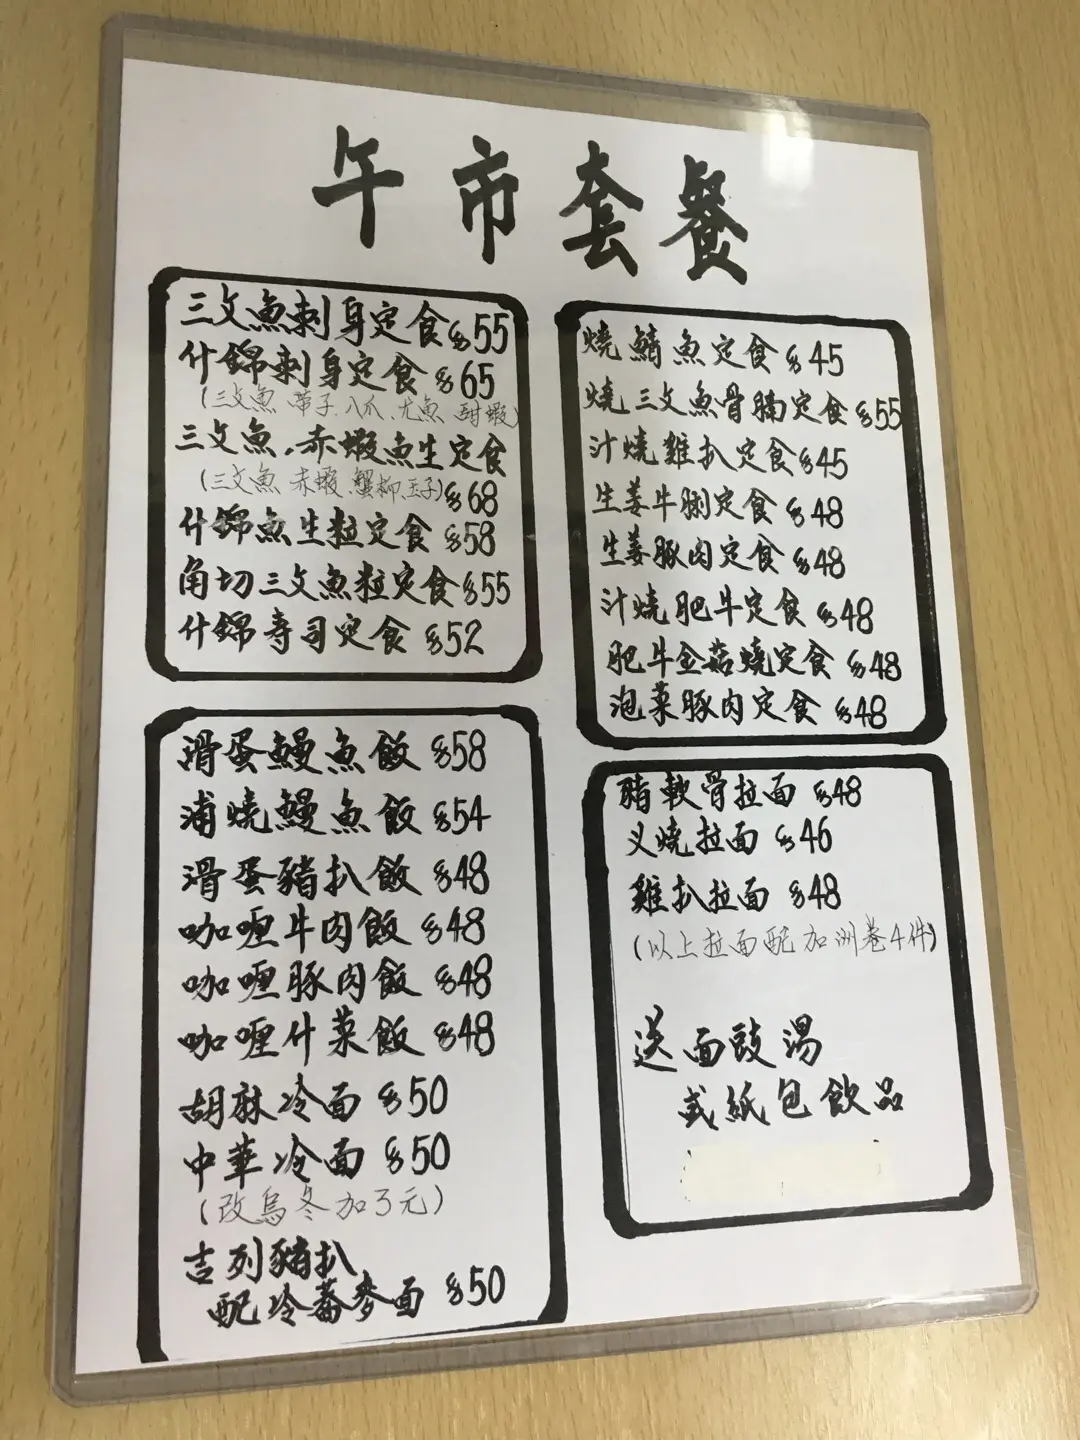 午市套餐
三文魚刺身定食$55
什錦刺身定食$65
(三文魚 帶子、八爪、尤魚、甜蝦)
三文魚、赤蝦魚生定食
(三文魚 赤蝦 蟹柳 玉子)$68
什錦魚生粒定食$58
角切三文魚粒定食$55
什錦寿司定食$52
燒鯖魚定食$45
燒三文魚骨腩定食$55
汁燒雞扒定食$45
生姜牛脷定食$48
生姜豚肉定食$48
汁燒肥牛定食$48
肥牛金菇燒定食$48
泡菜豚肉定食$48
滑蛋鰻魚飯$58
浦燒鰻魚飯$54
滑蛋豬扒飯$48
咖喱牛肉飯$48
咖喱豚肉飯$48
咖喱什菜飯$48
胡麻冷面$50
中華冷面$50
(改烏冬加3元)
吉列豬扒
配冷蕎麥面$50
豬軟骨拉面$48
叉燒拉面$46
雞扒拉面$48
(以上拉面配加洲卷4件)
送面豉湯
或紙包飲品